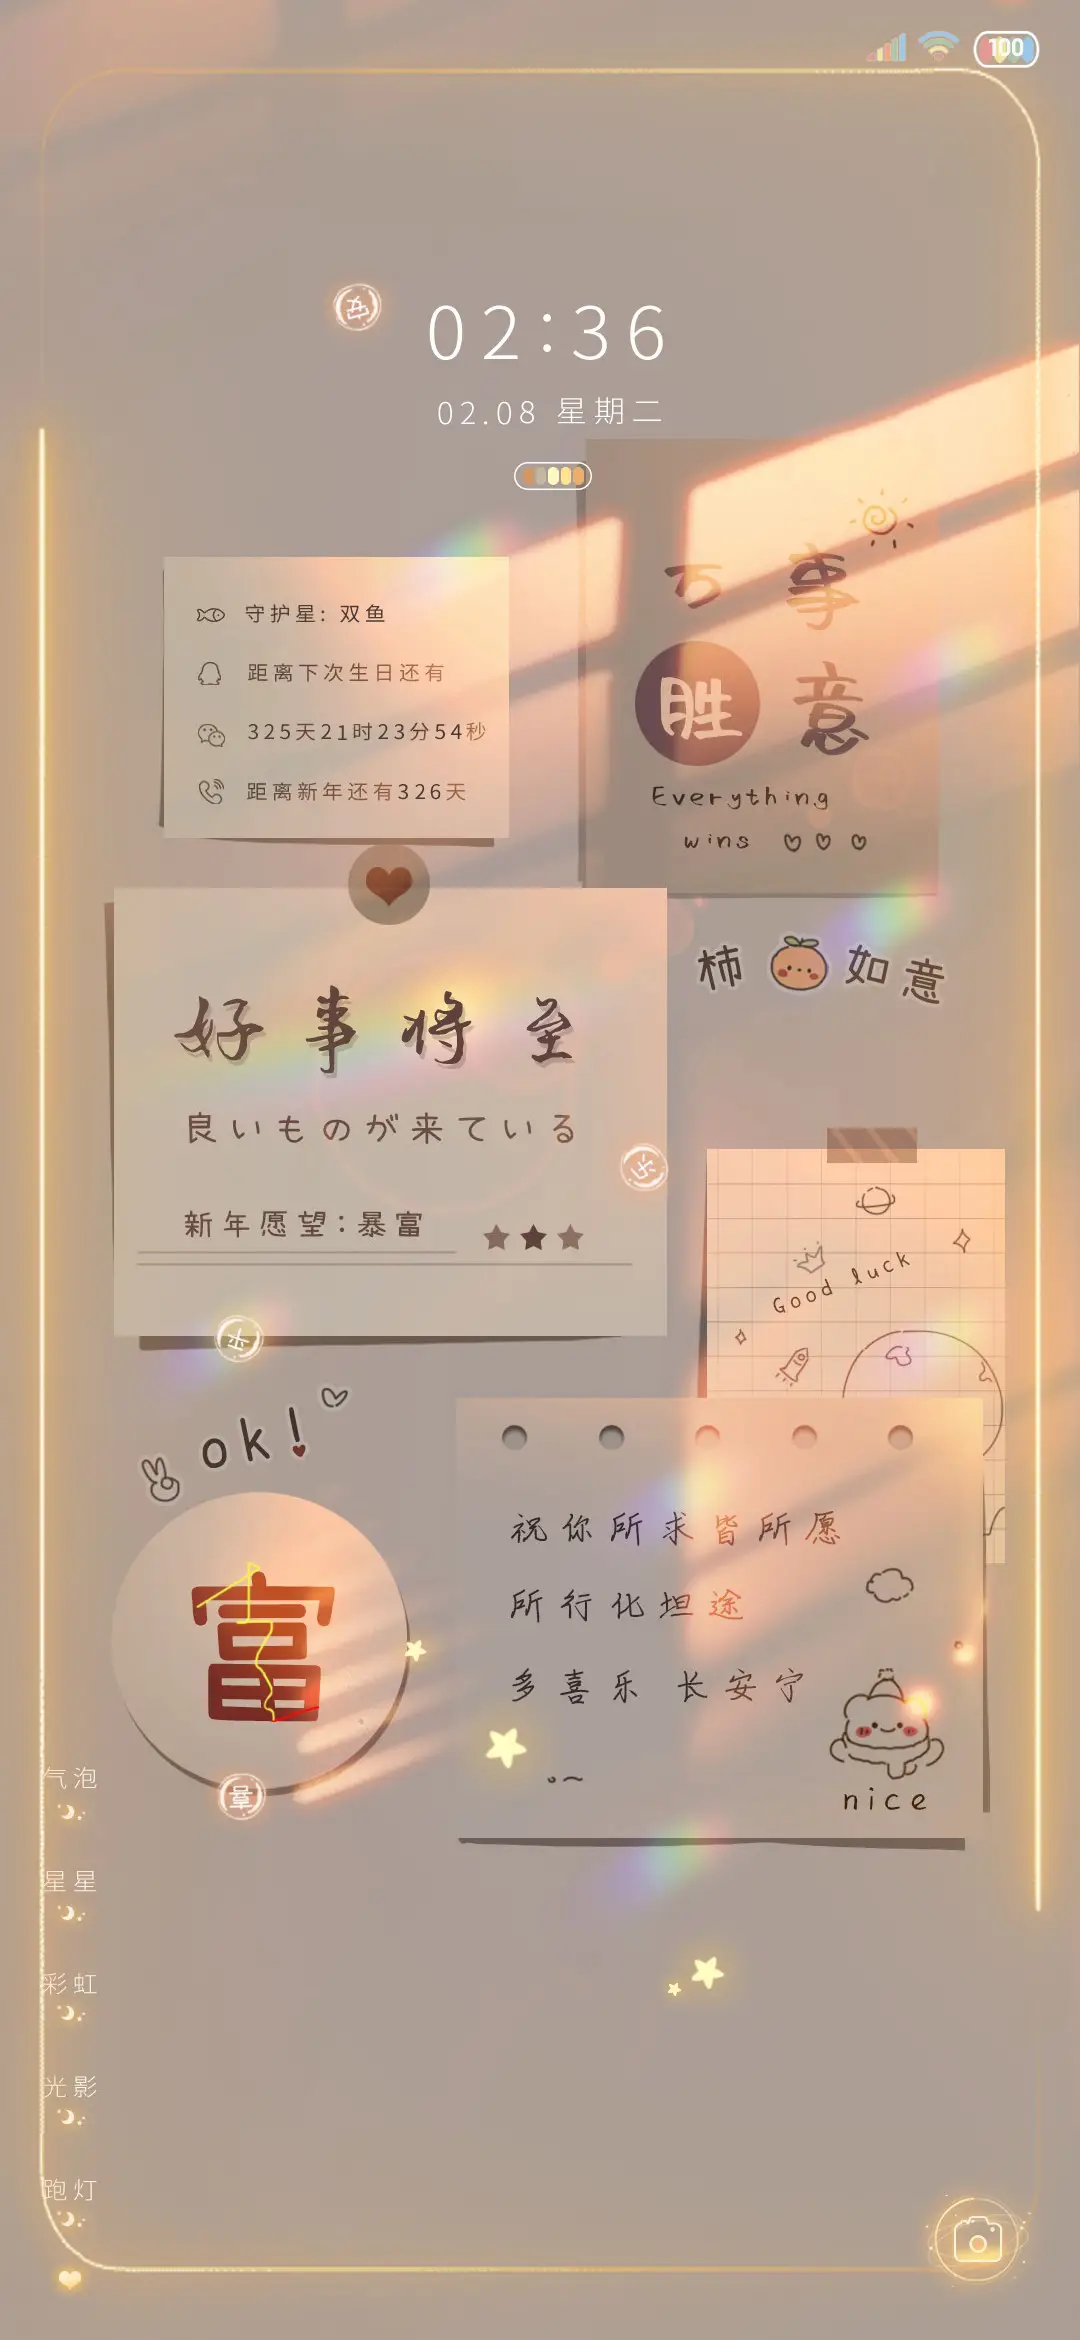 100
安
02:36
02.08 星期二
守护星: 双鱼
距离下次生日还有
325天21时23分54秒
距离新年还有326天
万事
胜意
Everything
wins
柿 如意
好事将至
良いものが来ている
乐
新年愿望:暴富
平
Good luck
ok!
富
祝你所求皆所愿
所行化坦途
多喜乐 长安宁
nice
喜
气泡
星星
彩虹
光影
跑灯